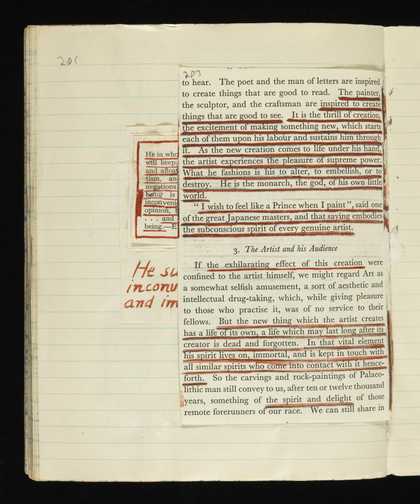 201
203
to hear. The poet and the man of letters are inspired
to create things that are good to read. The painter,
the sculptor, and the craftsman are inspired to create
things that are good to see. It is the thrill of creation,
the excitement of making something new, which starts
each of them upon his labour and sustains him through
it. As the new creation comes to life under his hand,
the artist experiences the pleasure of supreme power.
What he fashions is his to alter, to embellish, or to
destroy. He is the monarch, the god, of his own little
world.
"I wish to feel like a Prince when I paint", said one
of the great Japanese masters, and that saying embodies
the subconscious spirit of every genuine artist.
3. The Artist and his Audience
If the exhilarating effect of this creation were
confined to the artist himself, we might regard Art as
a somewhat selfish amusement, a sort of aesthetic and
intellectual drug-taking, which, while giving pleasure
to those who practise it, was of no service to their
fellows. But the new thing which the artist creates
has a life of its own, a life which may last long after its
creator is dead and forgotten. In that vital element
his spirit lives on, immortal, and is kept in touch with
all similar spirits who come into contact with it hence-
forth. So the carvings and rock-paintings of Palaeo-
lithic man still convey to us, after ten or twelve thousand
years, something of the spirit and delight of those
remote forerunners of our race. We can still share in
He is who
will keep
and
tism, an
negations
being is
inconveni
opinion,
. . . and
being.—E
He su
inconv
and im